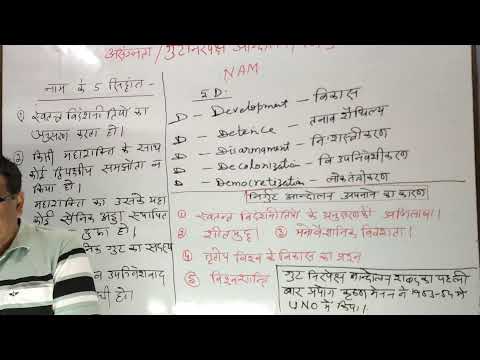 असंलग्नता / गुटनिरपेक्ष आन्दोलन /
NAM
नाम के 5 सिद्धांत -
① स्वतन्त्र विदेशनीतियों का
अनुसरण करता हो।
② किसी महाशक्ति के साथ
कोई द्विपक्षीय समझौता न
किया हो।
महाशक्ति का उसके यहां
कोई सैनिक अड्डा स्थापित
हो।
सैनिक गुट का सदस्य
उपनिवेशवाद
हो।
5 D:
D - Development - विकास
D - Detence - तनाव शैथिल्य
D - Disarmament - निःशस्त्रीकरण
D - Decolonization - वि उपनिवेशीकरण
D - Democretization - लोकतंत्रीकरण
निर्गुट आन्दोलन अपनाने का कारण
① स्वतन्त्र विदेशनीतियों के अनुसरण की अभिलाषा।
② शीतयुद्ध। ③ मनोवैज्ञानिक विवशता।
④ तृतीय विश्व के विकास का प्रश्न
⑤ विश्वशान्ति
गुट निरपेक्ष आन्दोलन शब्द का पहली
बार प्रयोग कृष्ण मेनन ने 1953-54 में
UNO में किया।